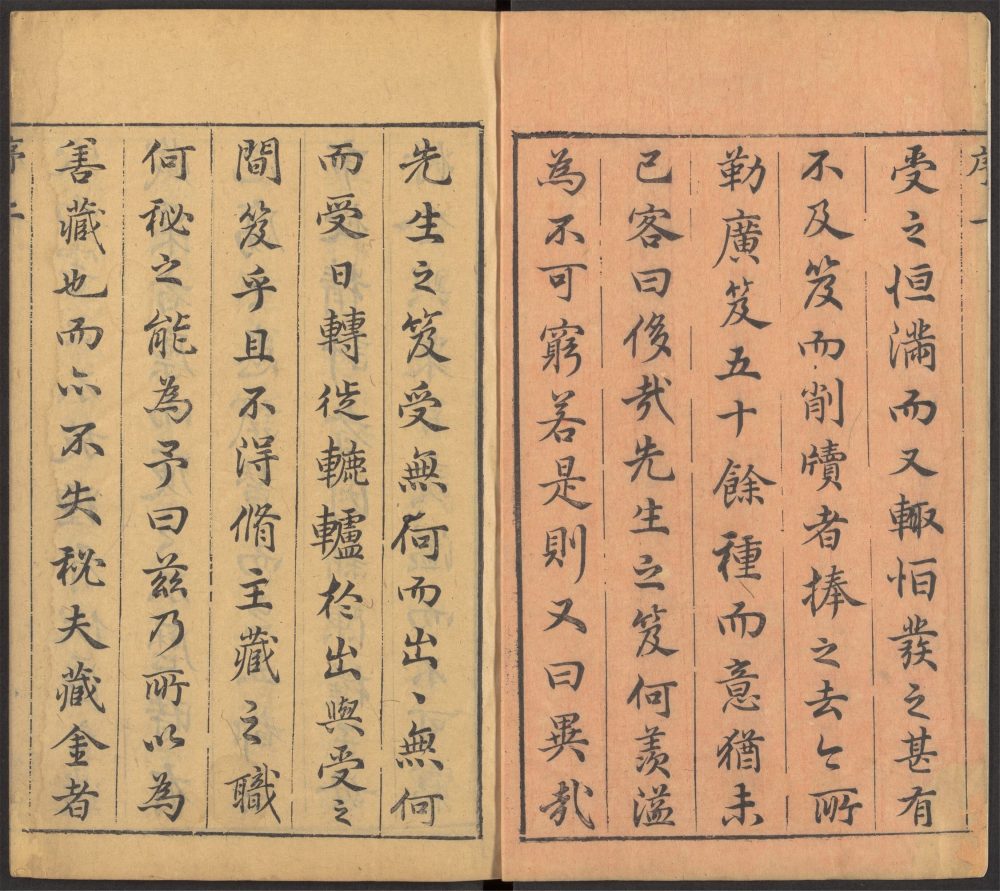 序一
受之恒滿而又輙怕發之甚有
不及笈而削牘者捧之去今所
勒廣笈五十餘種而意猶未
已客曰侈哉先生之笈何羨溢
為不可窮若是則又曰異哉
先生之笈受無何而出〻無何
而受日轉徙轆轤於出與受之
間笈乎且不得脩主藏之職
何秘之能為予曰兹乃所以為
善藏也而亦不失秘夫藏金者
序二